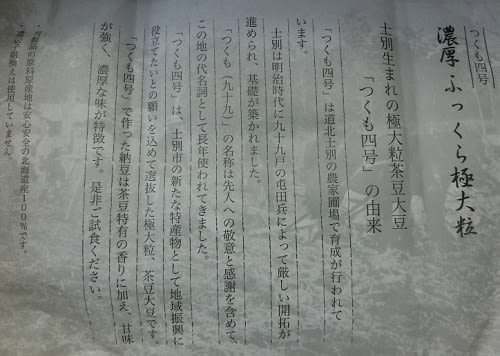 つくも四号
濃厚ふっくら極大粒
士別生まれの極大粒茶豆大豆
「つくも四号」の由来
「つくも四号」は道北士別の農家圃場で育成が行われて
います。
士別は明治時代に九十九戸の屯田兵によって厳しい開拓が
進められ、基礎が築かれました。
「つくも（九十九）」の名称は先人への敬意と感謝を含めて、
この地の代名詞として長年使われてきました。
「つくも四号」は、士別市の新たな特産物として地域振興に
役立てたいとの願いを込めて選抜した極大粒、茶豆大豆です。
「つくも四号」で作った納豆は茶豆特有の香りに加え、甘味
が強く、濃厚な味が特徴です。是非ご試食ください。
・当製品の原料原産地は安心安全の北海道産100％です。
・遺伝子組換えは使用していません。